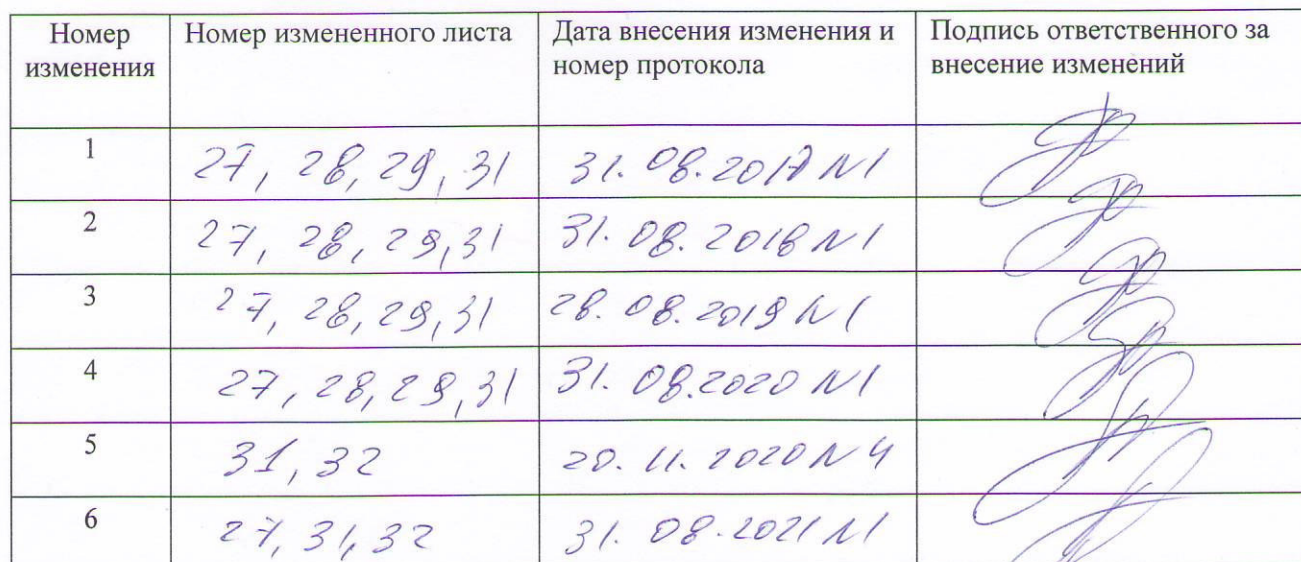 Номер изменения
Номер измененного листа
Дата внесения изменения и номер протокола
Подпись ответственного за внесение изменений
1
27, 28, 29, 31
31.08.2017 N1
2
27, 28, 29, 31
31.08.2018 N1
3
27, 28, 29, 31
28.08.2019 N1
4
27, 28, 29, 31
31.08.2020 N1
5
31, 32
20.11.2020 N4
6
27, 31, 32
31.08.2021 N1